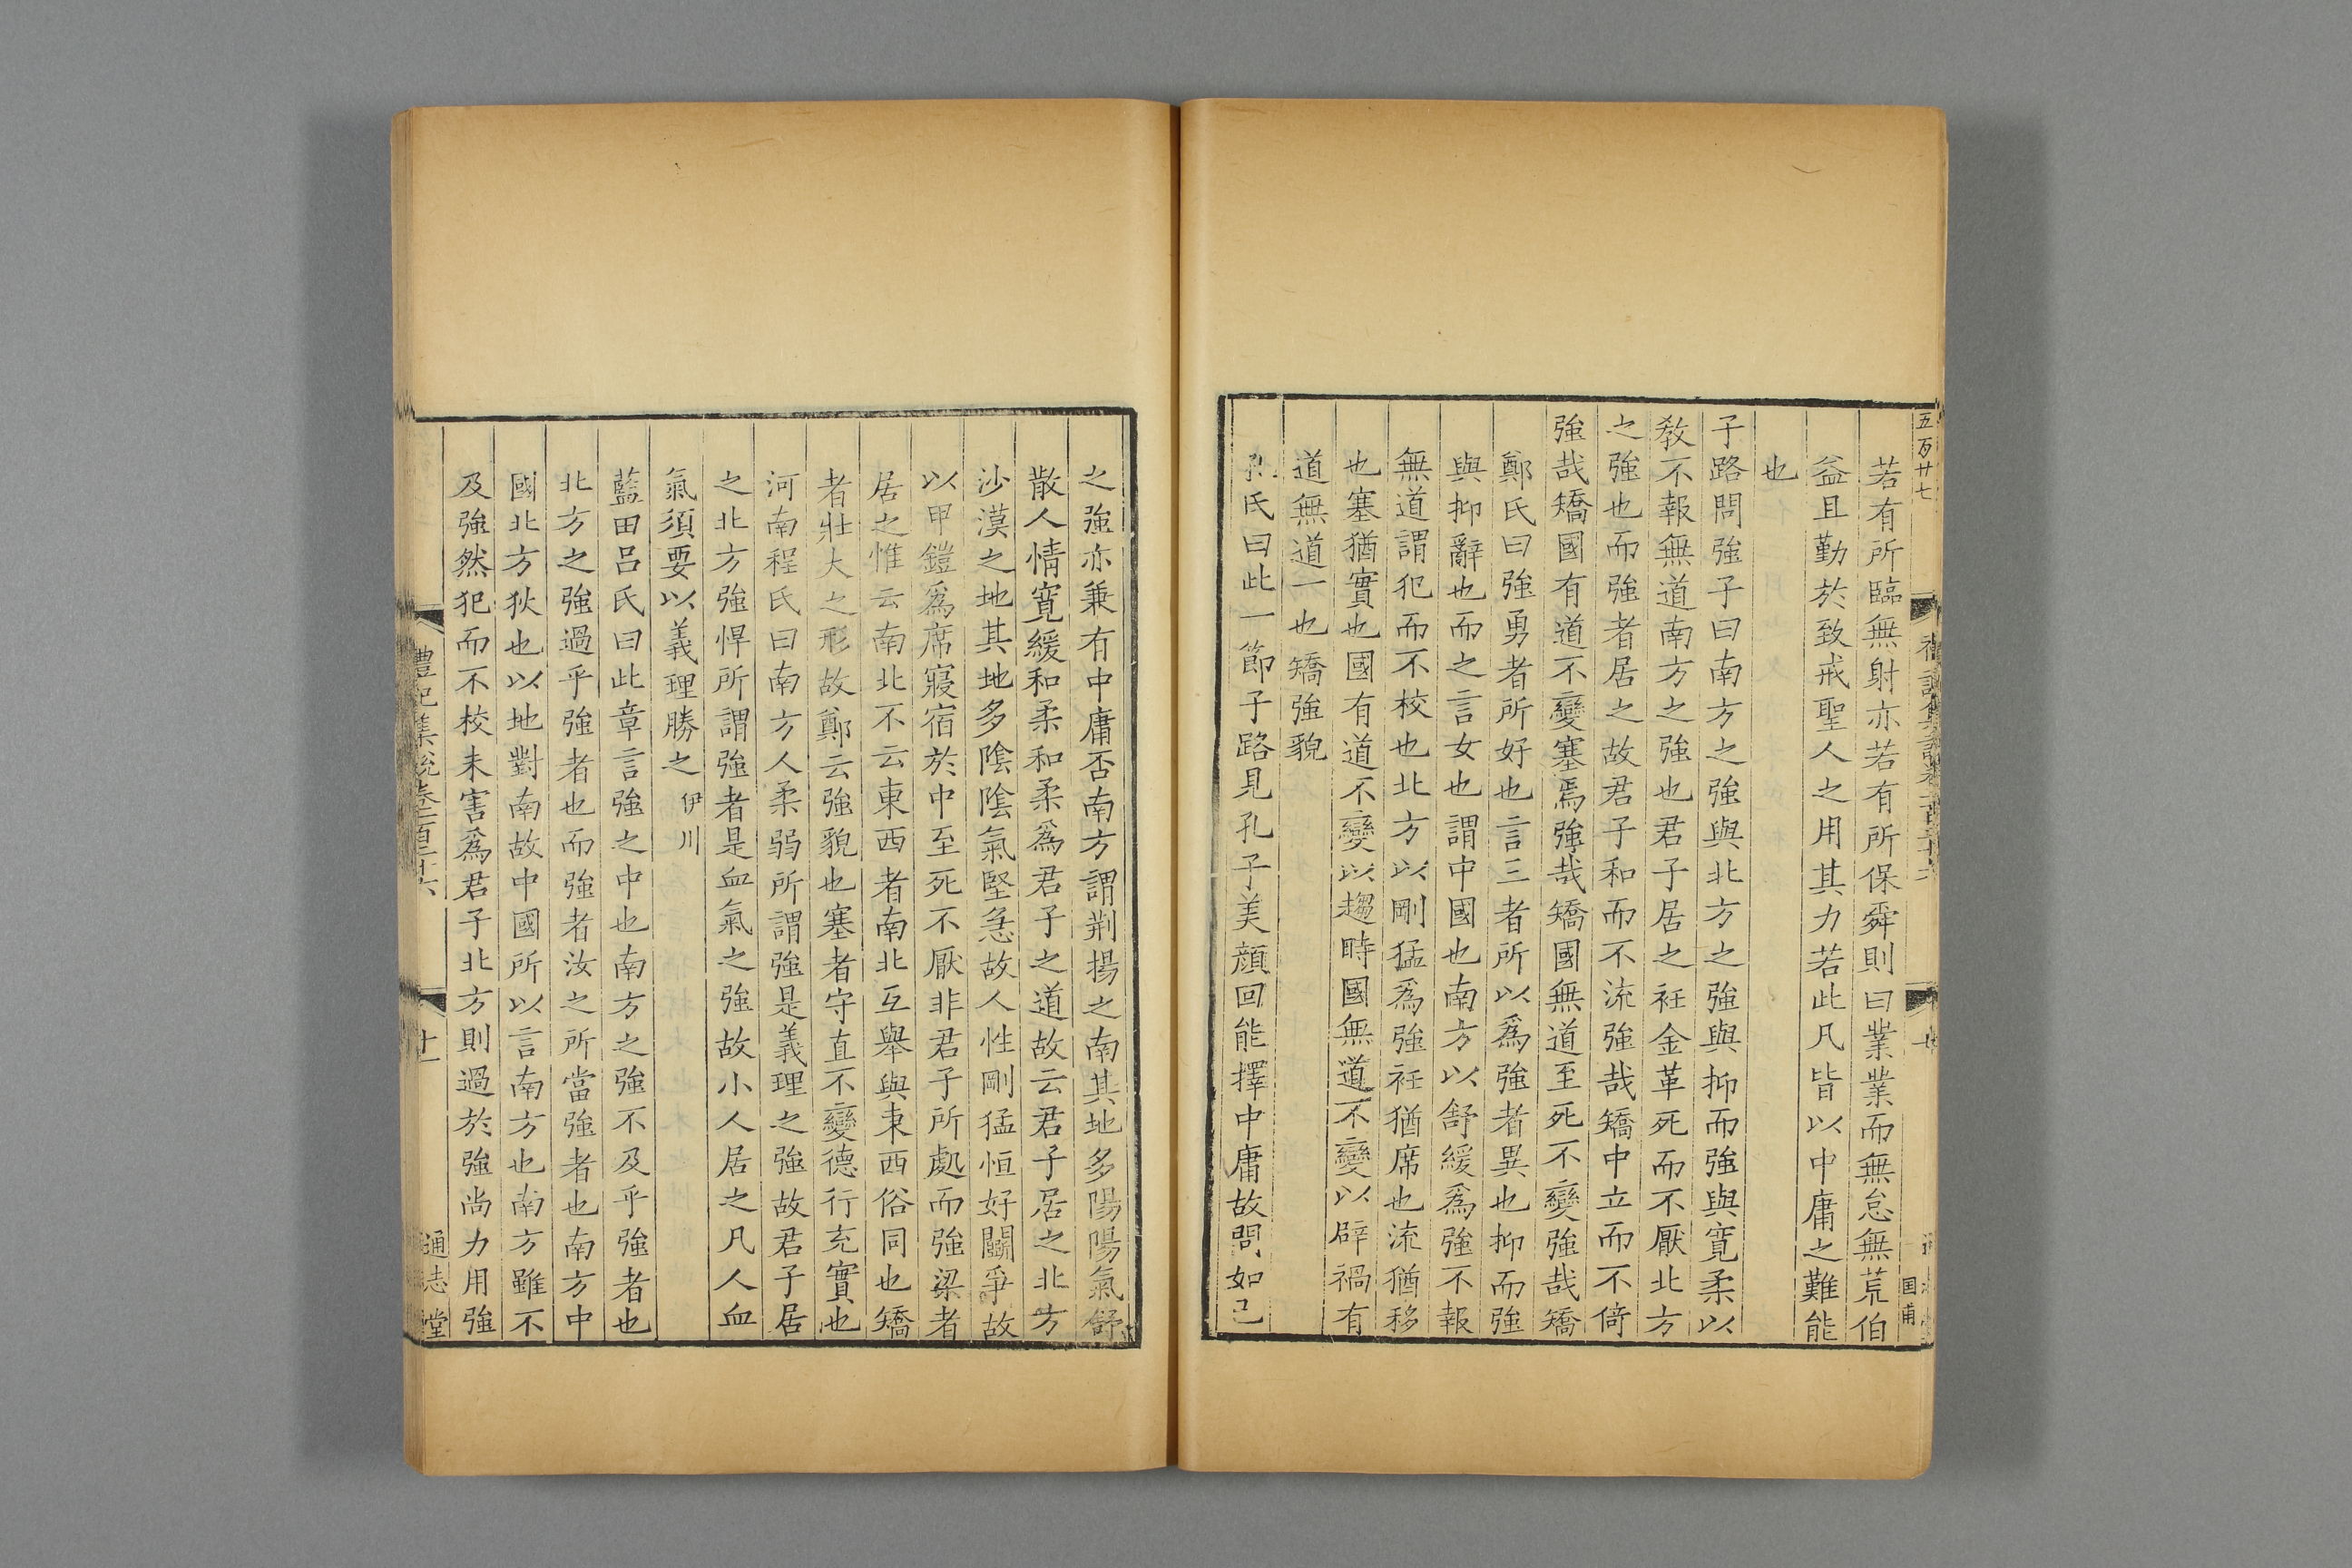 五百廿七
若有所臨無射亦若有所保舜則曰業業而無怠無荒伯
益且勤於致戒聖人之用其力若此凡皆以中庸之難能
也
子路問強子曰南方之強與北方之強與抑而強與寬柔以
教不報無道南方之強也君子居之衽金革死而不厭北方
之強也而強者居之故君子和而不流強哉矯中立而不倚
強哉矯國有道不變塞焉強哉矯國無道至死不變強哉矯
鄭氏曰強勇者所好也言三者所以爲強者異也抑而強
與抑辭也而之言女也謂中國也南方以舒緩爲強不報
無道謂犯而不校也北方以剛猛爲強衽猶席也流猶移
也塞猶實也國有道不變以趨時國無道不變以辟禍有
道無道一也矯強貌
孔氏曰此一節子路見孔子美顏回能擇中庸故問如己
之強亦兼有中庸否南方謂荆揚之南其地多陽陽氣舒
散人情寬緩和柔和柔爲君子之道故云君子居之北方
沙漠之地其地多陰陰氣堅急故人性剛猛恒好鬬爭故
以甲鎧爲席寢宿於中至死不厭非君子所處而強梁者
居之惟云南北不云東西者南北互舉與東西俗同也矯
者壯大之形故鄭云強貌也塞者守直不變德行充實也
河南程氏曰南方人柔弱所謂強是義理之強故君子居
之北方強悍所謂強者是血氣之強故小人居之凡人血
氣須要以義理勝之 伊川
藍田呂氏曰此章言強之中也南方之強不及乎強者也
北方之強過乎強者也而強者汝之所當強者也南方中
國北方狄也以地對南故中國所以言南方也南方雖不
及強然犯而不校未害爲君子北方則過於強尚力用強
禮記集說卷一百二十六
十一
通志堂